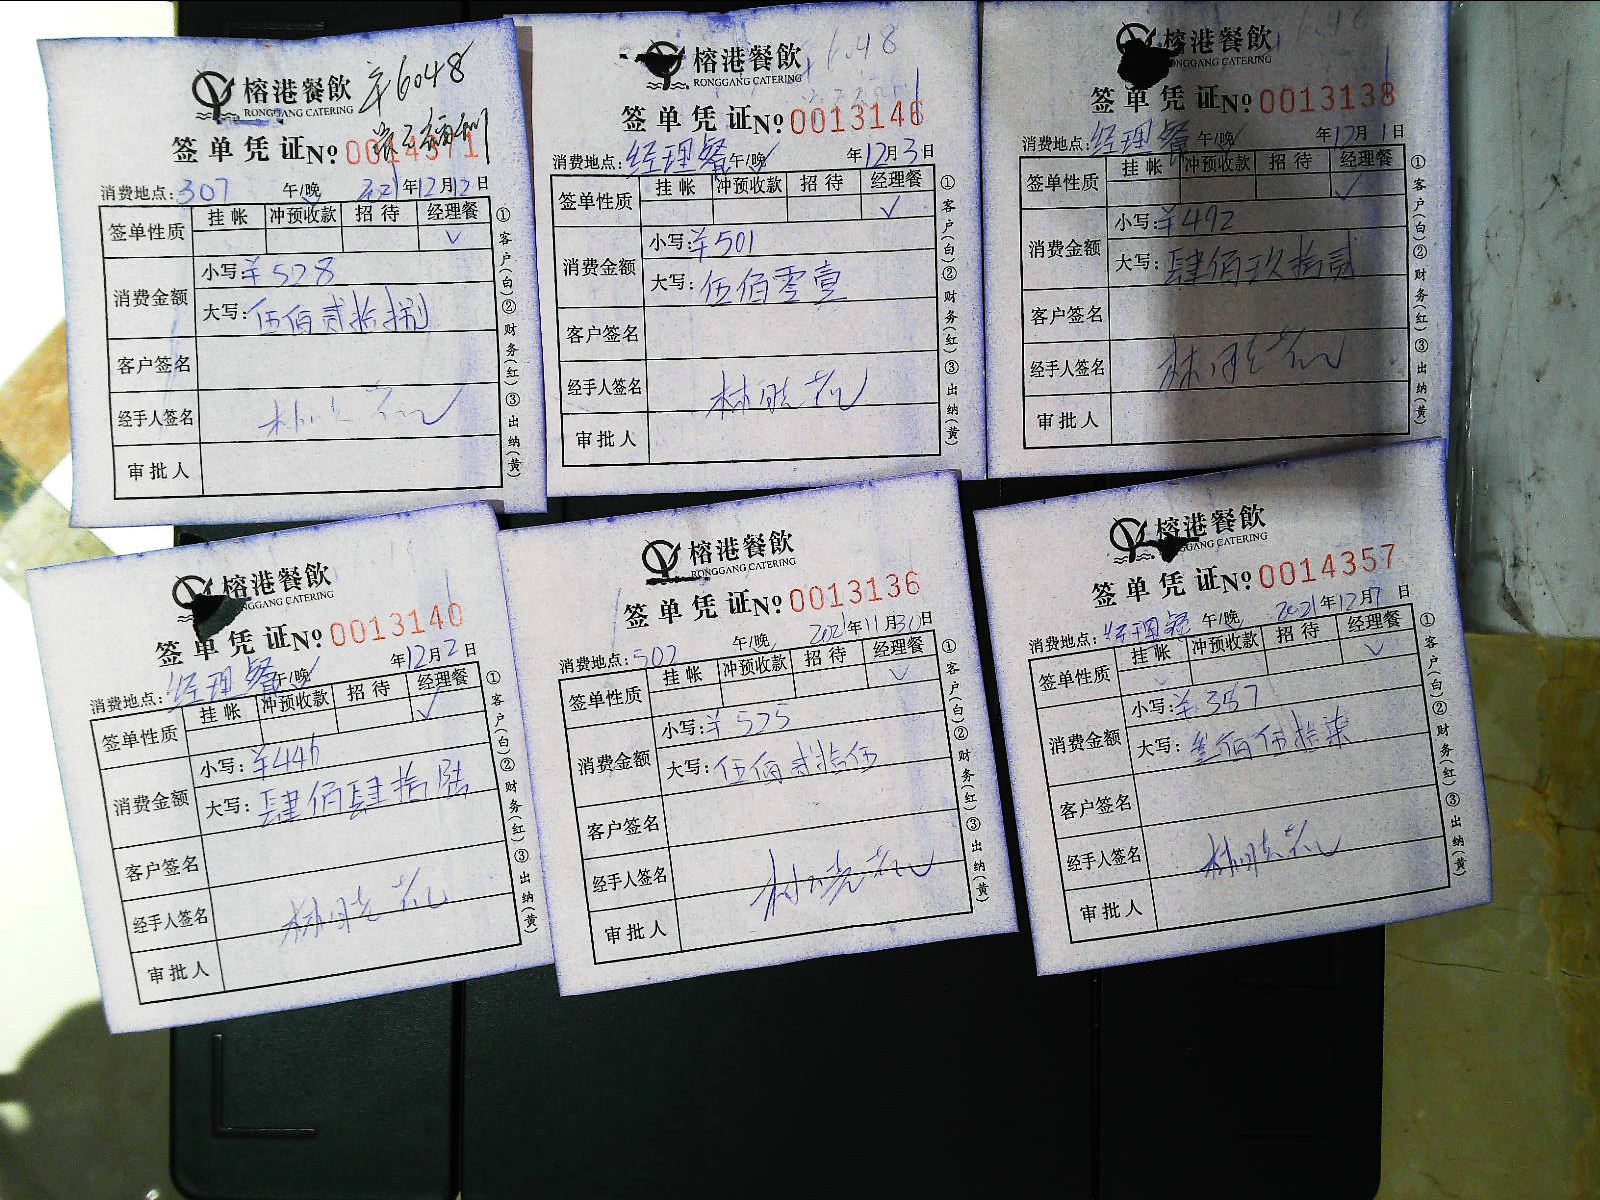 榕港餐飲
RONGGANG CATERING
卒6048
签单凭证 No 0014371
消费地点: 307 午/晚 2021年12月12日
签单性质 挂帐 冲预收款 招待 经理餐
✓
消费金额 小写: ¥528
大写: 伍佰贰拾捌
客户签名
经手人签名
审批人
①客户(白)②财务(红)③出纳(黄)
榕港餐飲
6048
RONGGANG CATERING
签单凭证 No 0013146
消费地点: 经理餐 午/晚 年12月3日
签单性质 挂帐 冲预收款 招待 经理餐
✓
消费金额 小写: ¥501
大写: 伍佰零壹
客户签名
经手人签名 林晓花
审批人
①客户(白)②财务(红)③出纳(黄)
榕港餐飲
RONGGANG CATERING
签单凭证 No 0013138
消费地点: 经理餐 午/晚 年12月1日
签单性质 挂帐 冲预收款 招待 经理餐
✓
消费金额 小写: ¥492
大写: 肆佰玖拾贰
客户签名
经手人签名 林晓花
审批人
①客户(白)②财务(红)③出纳(黄)
榕港餐飲
RONGGANG CATERING
签单凭证 No 0013140
消费地点: 经理餐 午/晚 年12月2日
签单性质 挂帐 冲预收款 招待 经理餐
✓
消费金额 小写: ¥446
大写: 肆佰肆拾陆
客户签名
经手人签名 林晓花
审批人
①客户(白)②财务(红)③出纳(黄)
榕港餐飲
RONGGANG CATERING
签单凭证 No 0013136
消费地点: 507 午/晚 2021年11月30日
签单性质 挂帐 冲预收款 招待 经理餐
✓
消费金额 小写: ¥525
大写: 伍佰贰拾伍
客户签名
经手人签名 林晓花
审批人
①客户(白)②财务(红)③出纳(黄)
榕港餐飲
RONGGANG CATERING
签单凭证 No 0014357
消费地点: 经理餐 午/晚 2021年12月7日
签单性质 挂帐 冲预收款 招待 经理餐
✓
消费金额 小写: ¥357
大写: 叁佰伍拾柒
客户签名
经手人签名 林晓花
审批人
①客户(白)②财务(红)③出纳(黄)